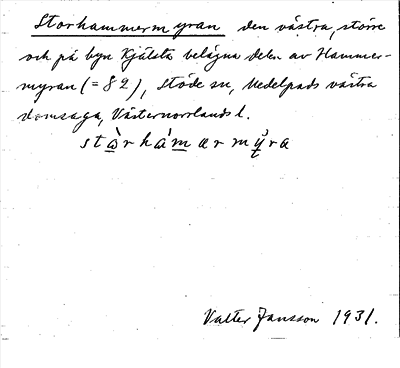 Storhammermyran den västra, större
och på byn Kjälsta belägna delen av Hammer-
myran (= 82), Stöde sn, Medelpads västra
domsaga, Västernorrlands l.
stàrhámarmy̆ra
Valter Jansson 1931.